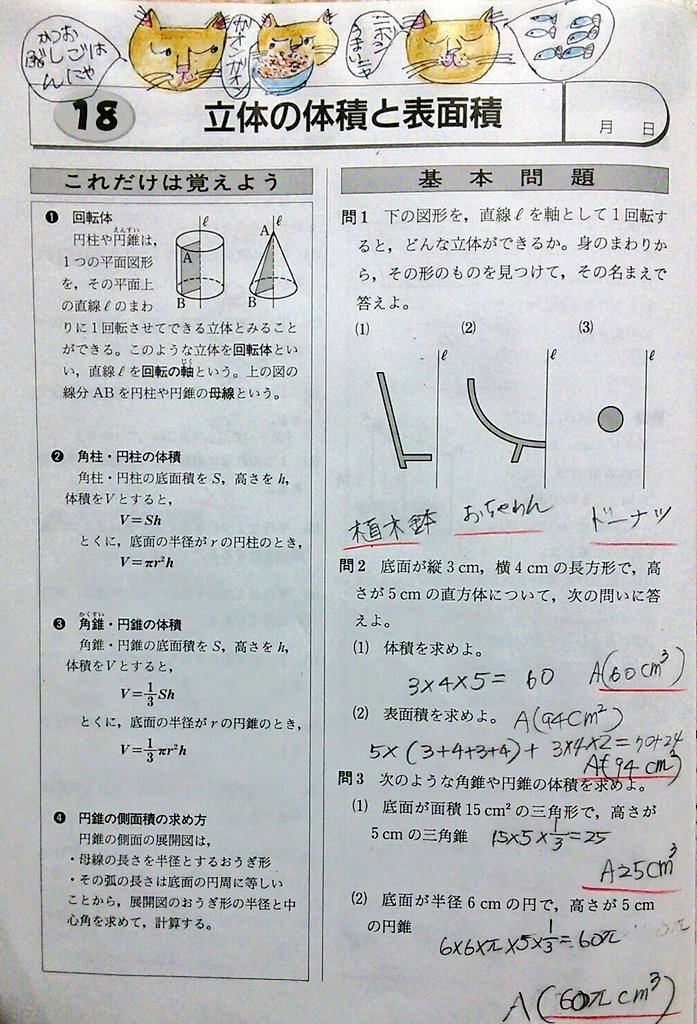 かつお
ぶしごは
んにゃ
ガオンガオン
ニボシ
うまいにゃ
18 立体の体積と表面積
月 日
これだけは覚えよう
❶ 回転体
円柱や円錐は，
えんすい
1つの平面図形
を，その平面上
の直線ℓのまわ
りに1回転させてできる立体とみること
ができる。このような立体を回転体とい
い，直線ℓを回転の軸という。上の図の
じく
線分ABを円柱や円錐の母線という。
ℓ ℓ
A A
B B
❷ 角柱・円柱の体積
角柱・円柱の底面積をS，高さをh，
体積をVとすると，
V=Sh
とくに，底面の半径がrの円柱のとき，
V=πr²h
❸ 角錐・円錐の体積
かくすい
角錐・円錐の底面積をS，高さをh，
体積をVとすると，
V=1/3Sh
とくに，底面の半径がrの円錐のとき，
V=1/3πr²h
❹ 円錐の側面積の求め方
円錐の側面の展開図は，
・母線の長さを半径とするおうぎ形
・その弧の長さは底面の円周に等しい
ことから，展開図のおうぎ形の半径と中
心角を求めて，計算する。
基本問題
問1 下の図形を，直線ℓを軸として1回転す
ると，どんな立体ができるか。身のまわりか
ら，その形のものを見つけて，その名まえで
答えよ。
(1) (2) (3)
ℓ ℓ ℓ
植木鉢 おちゃわん ドーナツ
問2 底面が縦3cm，横4cmの長方形で，高
さが5cmの直方体について，次の問いに答
えよ。
(1) 体積を求めよ。
3×4×5= 60 A(60cm³)
(2) 表面積を求めよ。 A(94cm²)
5×(3+4+3+4)+ 3×4×2=70+24
A(94cm²)
問3 次のような角錐や円錐の体積を求めよ。
(1) 底面が面積15cm²の三角形で，高さが
5cmの三角錐 15×5×1/3=25
A25cm³
(2) 底面が半径6cmの円で，高さが5cm
の円錐
6×6×π×5×1/3=60π
A(60πcm³)